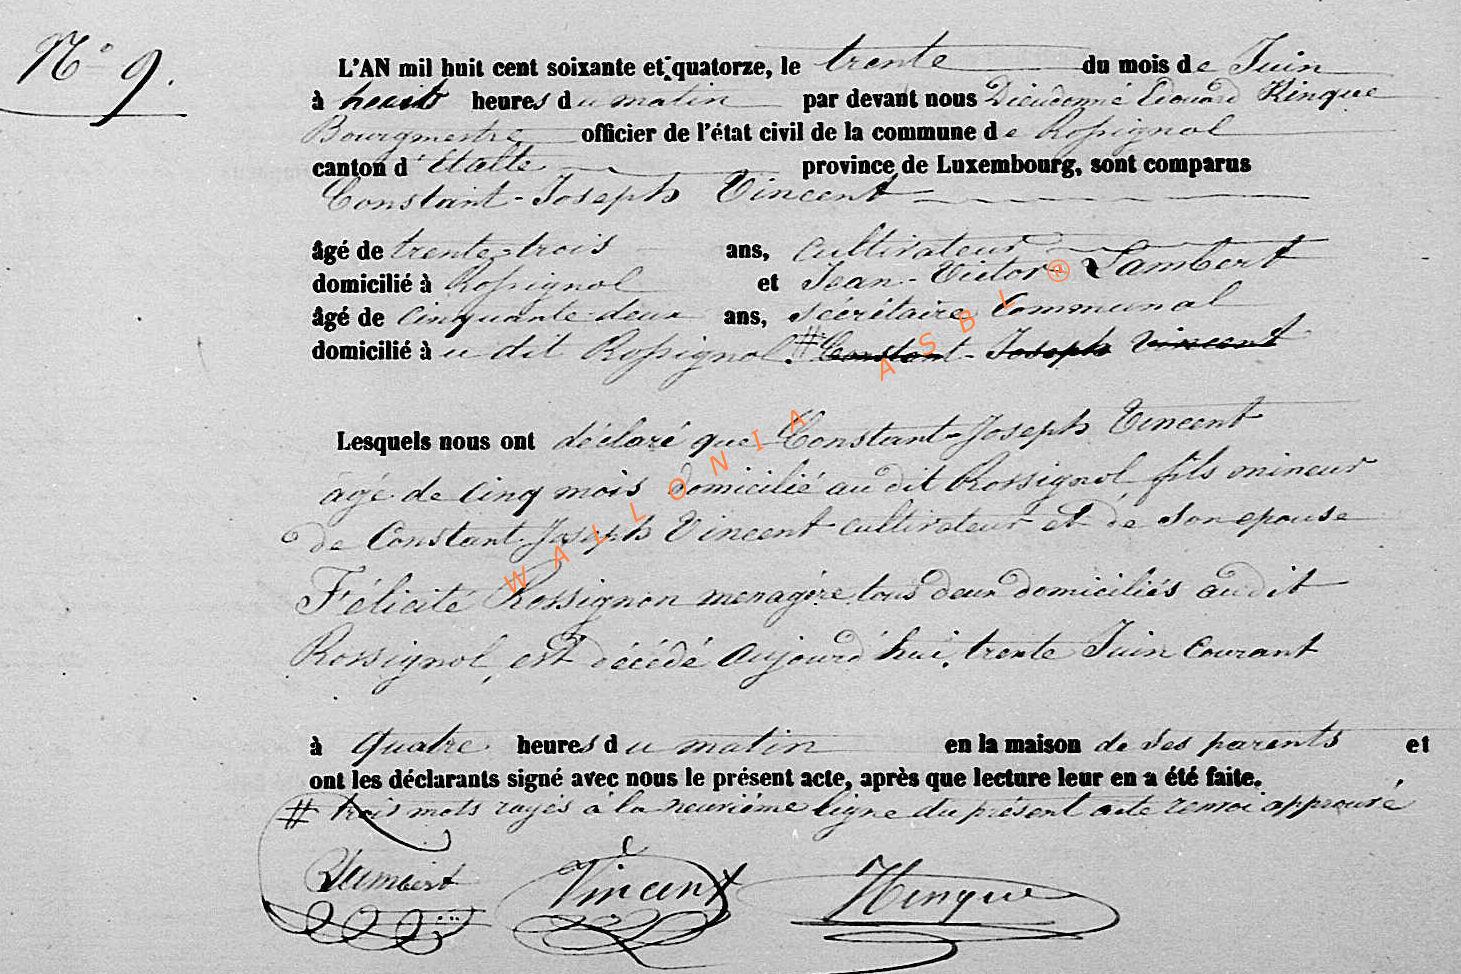 N° 9.
L'AN mil huit cent soixante et quatorze, le trente du mois de Juin
à huit heures du matin par devant nous Dieudonné Edouard Hinque
Bourgmestre officier de l'état civil de la commune de Rossignol
canton d'Etalle province de Luxembourg, sont comparus
Constant-Joseph Vincent
âgé de trente-trois ans, cultivateur
domicilié à Rossignol et Jean-Victor Lambert
âgé de cinquante deux ans, sécrétaire Communal
domicilié à u dit Rossignol. # Constant-Joseph Vincent
Lesquels nous ont déclaré que Constant-Joseph Vincent
âgé de cinq mois domicilié au dit Rossignol fils mineur
de Constant Joseph Vincent cultivateur et de son epouse
Félicité Rossignon menagère tous deux domiciliés audit
Rossignol, est décédé aujourd'hui, trente Juin courant
à quatre heures du matin en la maison de ses parents et
ont les déclarants signé avec nous le présent acte, après que lecture leur en a été faite.
# trois mots rayés à la neuvième ligne du présent acte renvoi approuvé
Lambert Vincent Hinque
WALLONIA ASBL ®